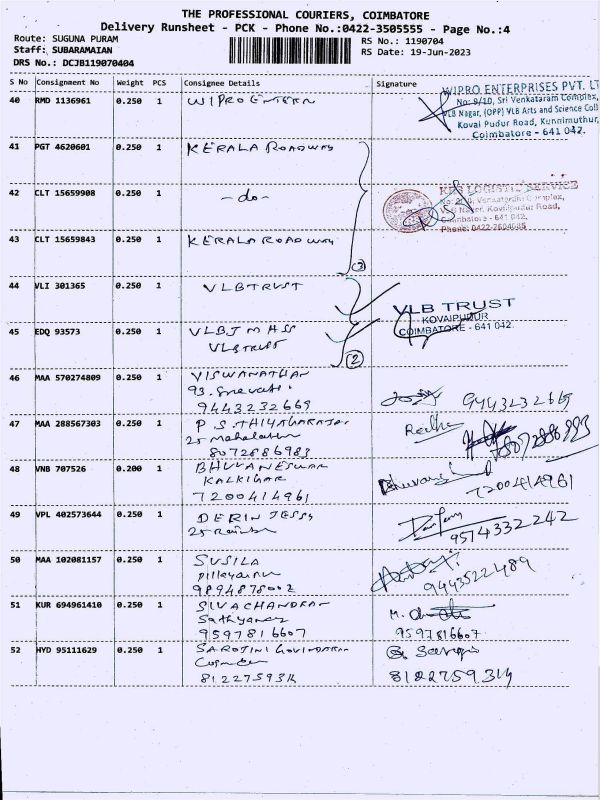 THE PROFESSIONAL COURIERS, COIMBATORE
Delivery Runsheet - PCK - Phone No.:0422-3505555 - Page No.:4
Route: SUGUNA PURAM
RS No.: 1190704
Staff: SUBARAMAIAN
RS Date: 19-Jun-2023
DRS No.: DCJB119070404
S No Consignment No Weight PCS Consignee Details Signature
40 RMD 1136961 0.250 1 WIPRO
WIPRO ENTERPRISES PVT. LT
No: 9/10, Sri Venkataram Complex,
VLB Nagar, (OPP) VLB Arts and Science Coll
Kovai Pudur Road, Kunnimuthur,
Coimbatore - 641 042.
41 PGT 4620601 0.250 1 KERALA ROADWAY
42 CLT 15659908 0.250 1 -do-
LOGISTIC SERVICE
Complex,
Kovaipudur Road,
Coimbatore - 641 042,
Phone: 0422-2604085
43 CLT 15659843 0.250 1 KERALA ROADWAY
3
44 VLI 301365 0.250 1 VLB TRUST
VLB TRUST
KOVAIPUDUR
COIMBATORE - 641 042.
45 EDQ 93573 0.250 1 VLB
VLB TRUST
2
46 MAA 570274809 0.250 1 VISWANATHAN
93.
9443232669 9443232669
47 MAA 288567303 0.250 1 P S THIYAGARAJAN
25
8072886983 8072886983
48 VNB 707526 0.200 1 BHUVANESWAR
KALKIHAR
7200414961 7200414961
49 VPL 402573644 0.250 1 DERIN JESSY
25
9574332242
50 MAA 102081157 0.250 1 SUSILA
9894878002 9443522489
51 KUR 694961410 0.250 1 SIVACHANDRAN
M.
9597816607 9597816607
52 HYD 95111629 0.250 1 SAROJINI GOVINDARAJ
8122759314 8122759314